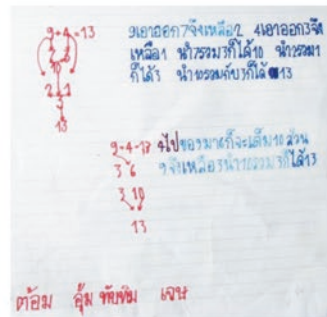 9+4=13
9เอาออก7จึงเหลือ2 4เอาออก3จึง
เหลือ1 นำ7รวม3ก็ได้10 นำ2รวม1
ก็ได้3 นำ10รวมกับ3ก็ได้13
10
2 1
3
13
9-4-13
4ไป
ก็จะเต็ม10 ส่วน
3 6
9จึงเหลือ3นำ10รวม3ก็ได้13
3 10
13
ต้อม อุ้ม ทับทิม เจษ